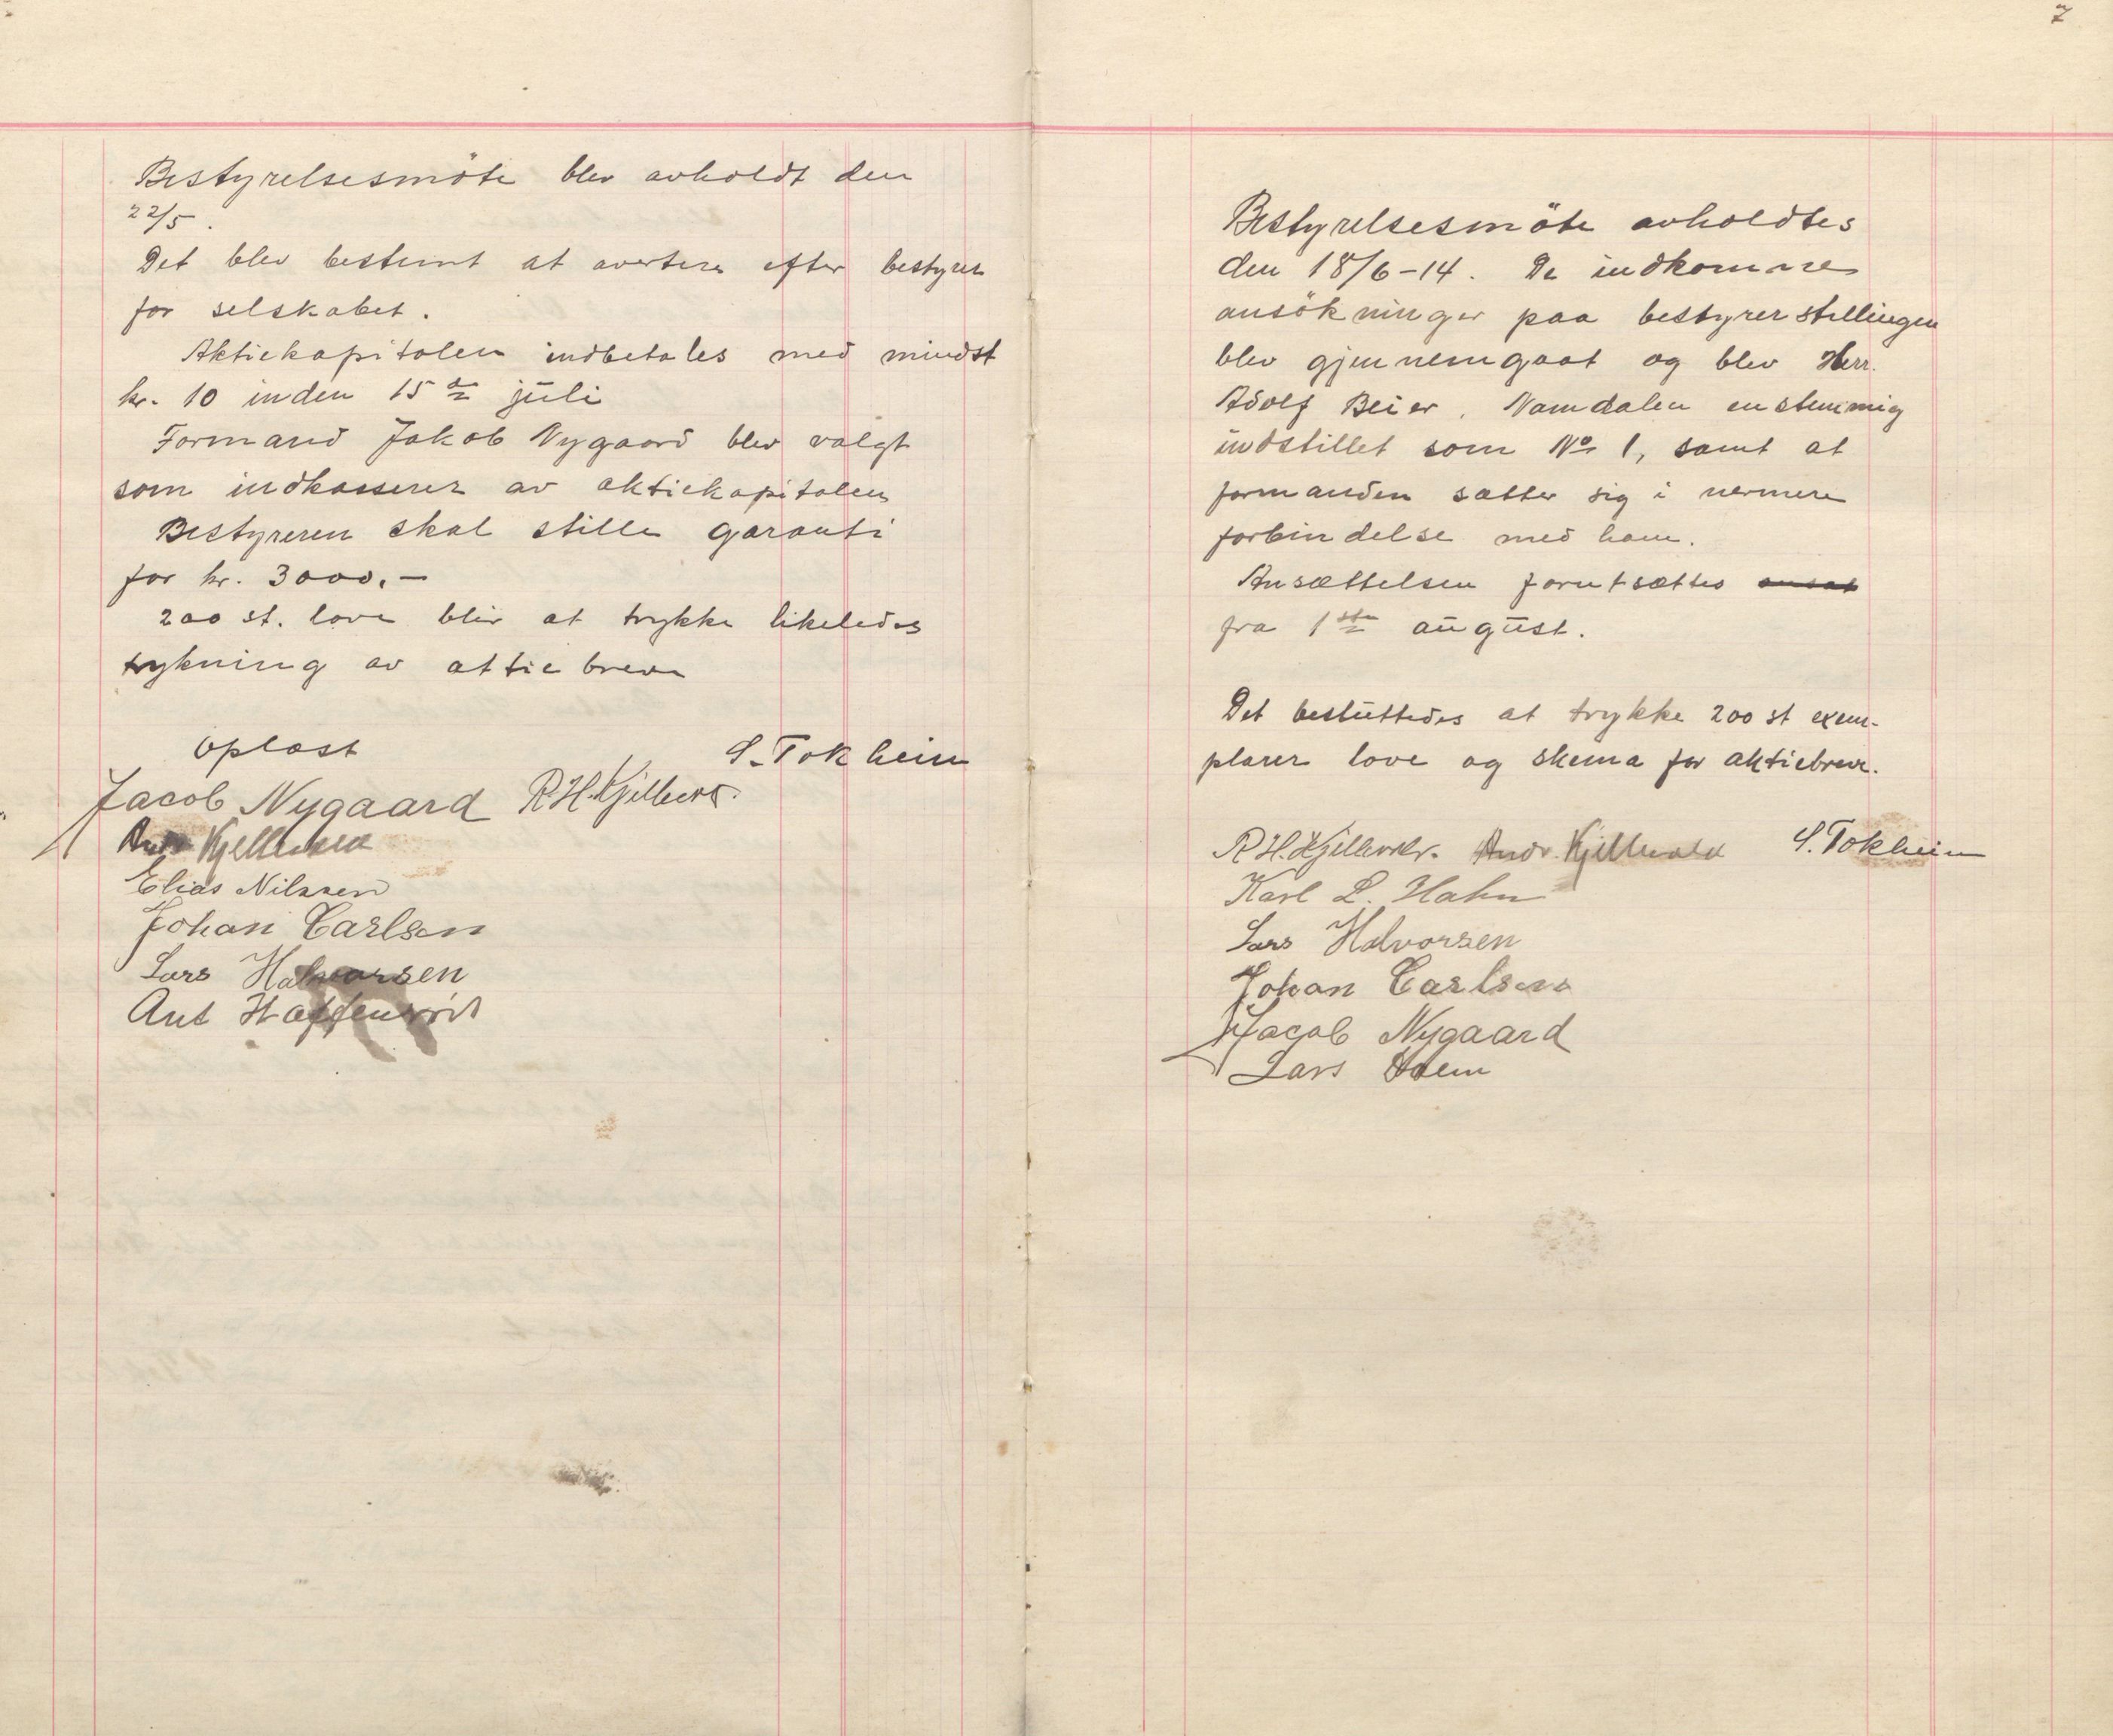 Bestyrelsesmöte blev avholdt den
22/5.
Det blev bestemt at avertere efter bestyrer
for selskabet.
Aktiekapitalen indbetales med mindst
kr. 10 inden 15de juli
Formand Jakob Nygaard blev valgt
som indkasserer av aktiekapitalen
Bestyreren skal stille garanti
for kr. 3000.-
200 st. love blir at trykke likeledes
trykning av attie breve
oplæst
S. Tokheim
Jacob Nygaard R.H. Kjellevold.
Andr Kjellevold
Elias Nilssen
Johan Carlsen
Lars Halvorsen
Ant
7
Bestyrelsesmöte avholdtes
den 18/6-14. De indkomne
ansökninger paa bestyrerstillingen
blev gjennemgaat og blev Herr.
Adolf Beier. Namdalen enstemmig
indstillet som No 1, samt at
formanden sætter sig i nermere
forbindelse med ham.
Ansættelsen forutsættes ansat
fra 1ste august.
Det besluttedes at trykke 200 st exem-
plarer love og skema for aktiebreve.
R.H. Kjellevold. Andr. Kjellevold S. Tokheim
Karl L. Hahn
Lars Halvorsen
Johan Carlsen
Jacob Nygaard
Lars Holm